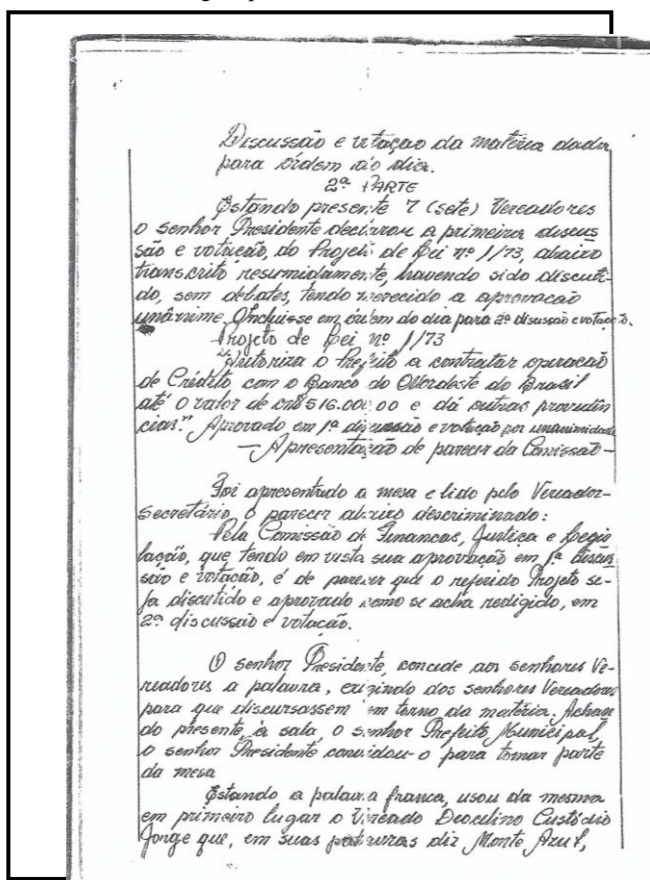 Discussão e votação da matéria dada
para órdem do dia.
2ª PARTE
Estando presente 7 (sete) Vereadores
o senhor Presidente declarou a primeira discus
são e votação, do Projeto de Lei nº 1/73, abaixo
transcrito resumidamente, havendo sido discuti-
do, sem debates, tendo merecido a aprovação
unânime. Incluisse em órdem do dia para 2ª discussão e votação.
Projeto de Lei nº 1/73
"Autoriza o Prefeito a contratar operação
de Crédito com o Banco do Nordeste do Brasil
até o valor de cr$ 516.000,00 e dá outras providên
cias." Aprovado em 1ª discussão e votação por unanimidade
— Apresentação de parecer da Comissão —
Foi apresentado a mesa e lido pelo Vereador-
Secretário, o parecer abaixo descriminado:
Pela Comissão de Finanças, Justiça e Legis
lação, que tendo em vista sua aprovação em 1ª discus
são e votação, é de parecer que o referido Projeto se-
ja discutido e aprovado como se acha redigido, em
2ª discussão e votação.
O senhor Presidente, concede aos senhores Ve-
readores a palavra, exigindo dos senhores Vereadores
para que discursassem em torno da matéria. Achan
do presente, à sala, o senhor Prefeito Municipal,
o senhor Presidente convidou-o para tomar parte
da mesa
Estando a palavra franca, usou da mesma
em primeiro lugar o Vereado Deocelino Custódio
Jorge que, em suas palavras diz Monte Azul,